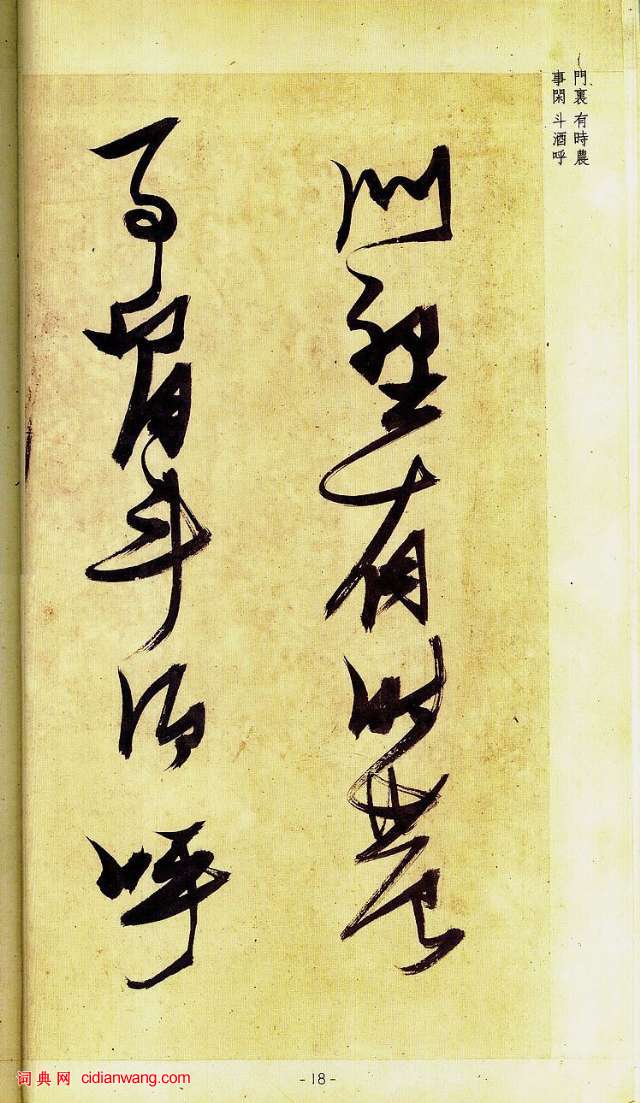 門裏 有時農
事閑 斗酒呼
門裏有時農
事閑斗酒呼
- 18 -
词典网 cidianwang.com